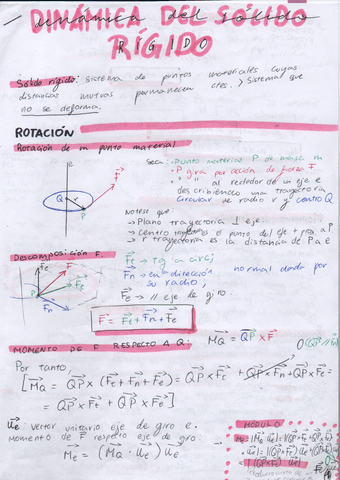 DINÁMICA DEL SÓLIDO
RÍGIDO
Sólido rígido: sistema de puntos materiales cuyas
distancias mutuas permanecen ctes. > Sistema que
no se deforma.
ROTACIÓN
Rotación de un punto material
Sea: · Punto material P de masa m
· P gira por acción de fuerza F
· " " al rededor de un eje e
describiendo una trayectoria
circular de radio r y centro Q
Q r P F
Nótese que
→ Plano trayectoria ⊥ eje.
→ Centro trayect. es el punto del eje + prox a P
→ r trayectoria es la distancia de P a e
Descomposición F.
Ft → Tg a circ;
Fn → en dirección normal dada por
su radio;
Fe → // eje de giro.
F = Ft + Fn + Fe
MOMENTO DE F RESPECTO A Q:
MQ = QP × F
Por tanto,
[MQ = QP × (Ft + Fn + Fe) = QP × Ft + QP × Fn + QP × Fe =
= QP × Ft + QP × Fe]
Ue vector unitario eje de giro e.
Momento de F respecto eje de giro
Me = (MQ · Ue) Ue
MÓDULO